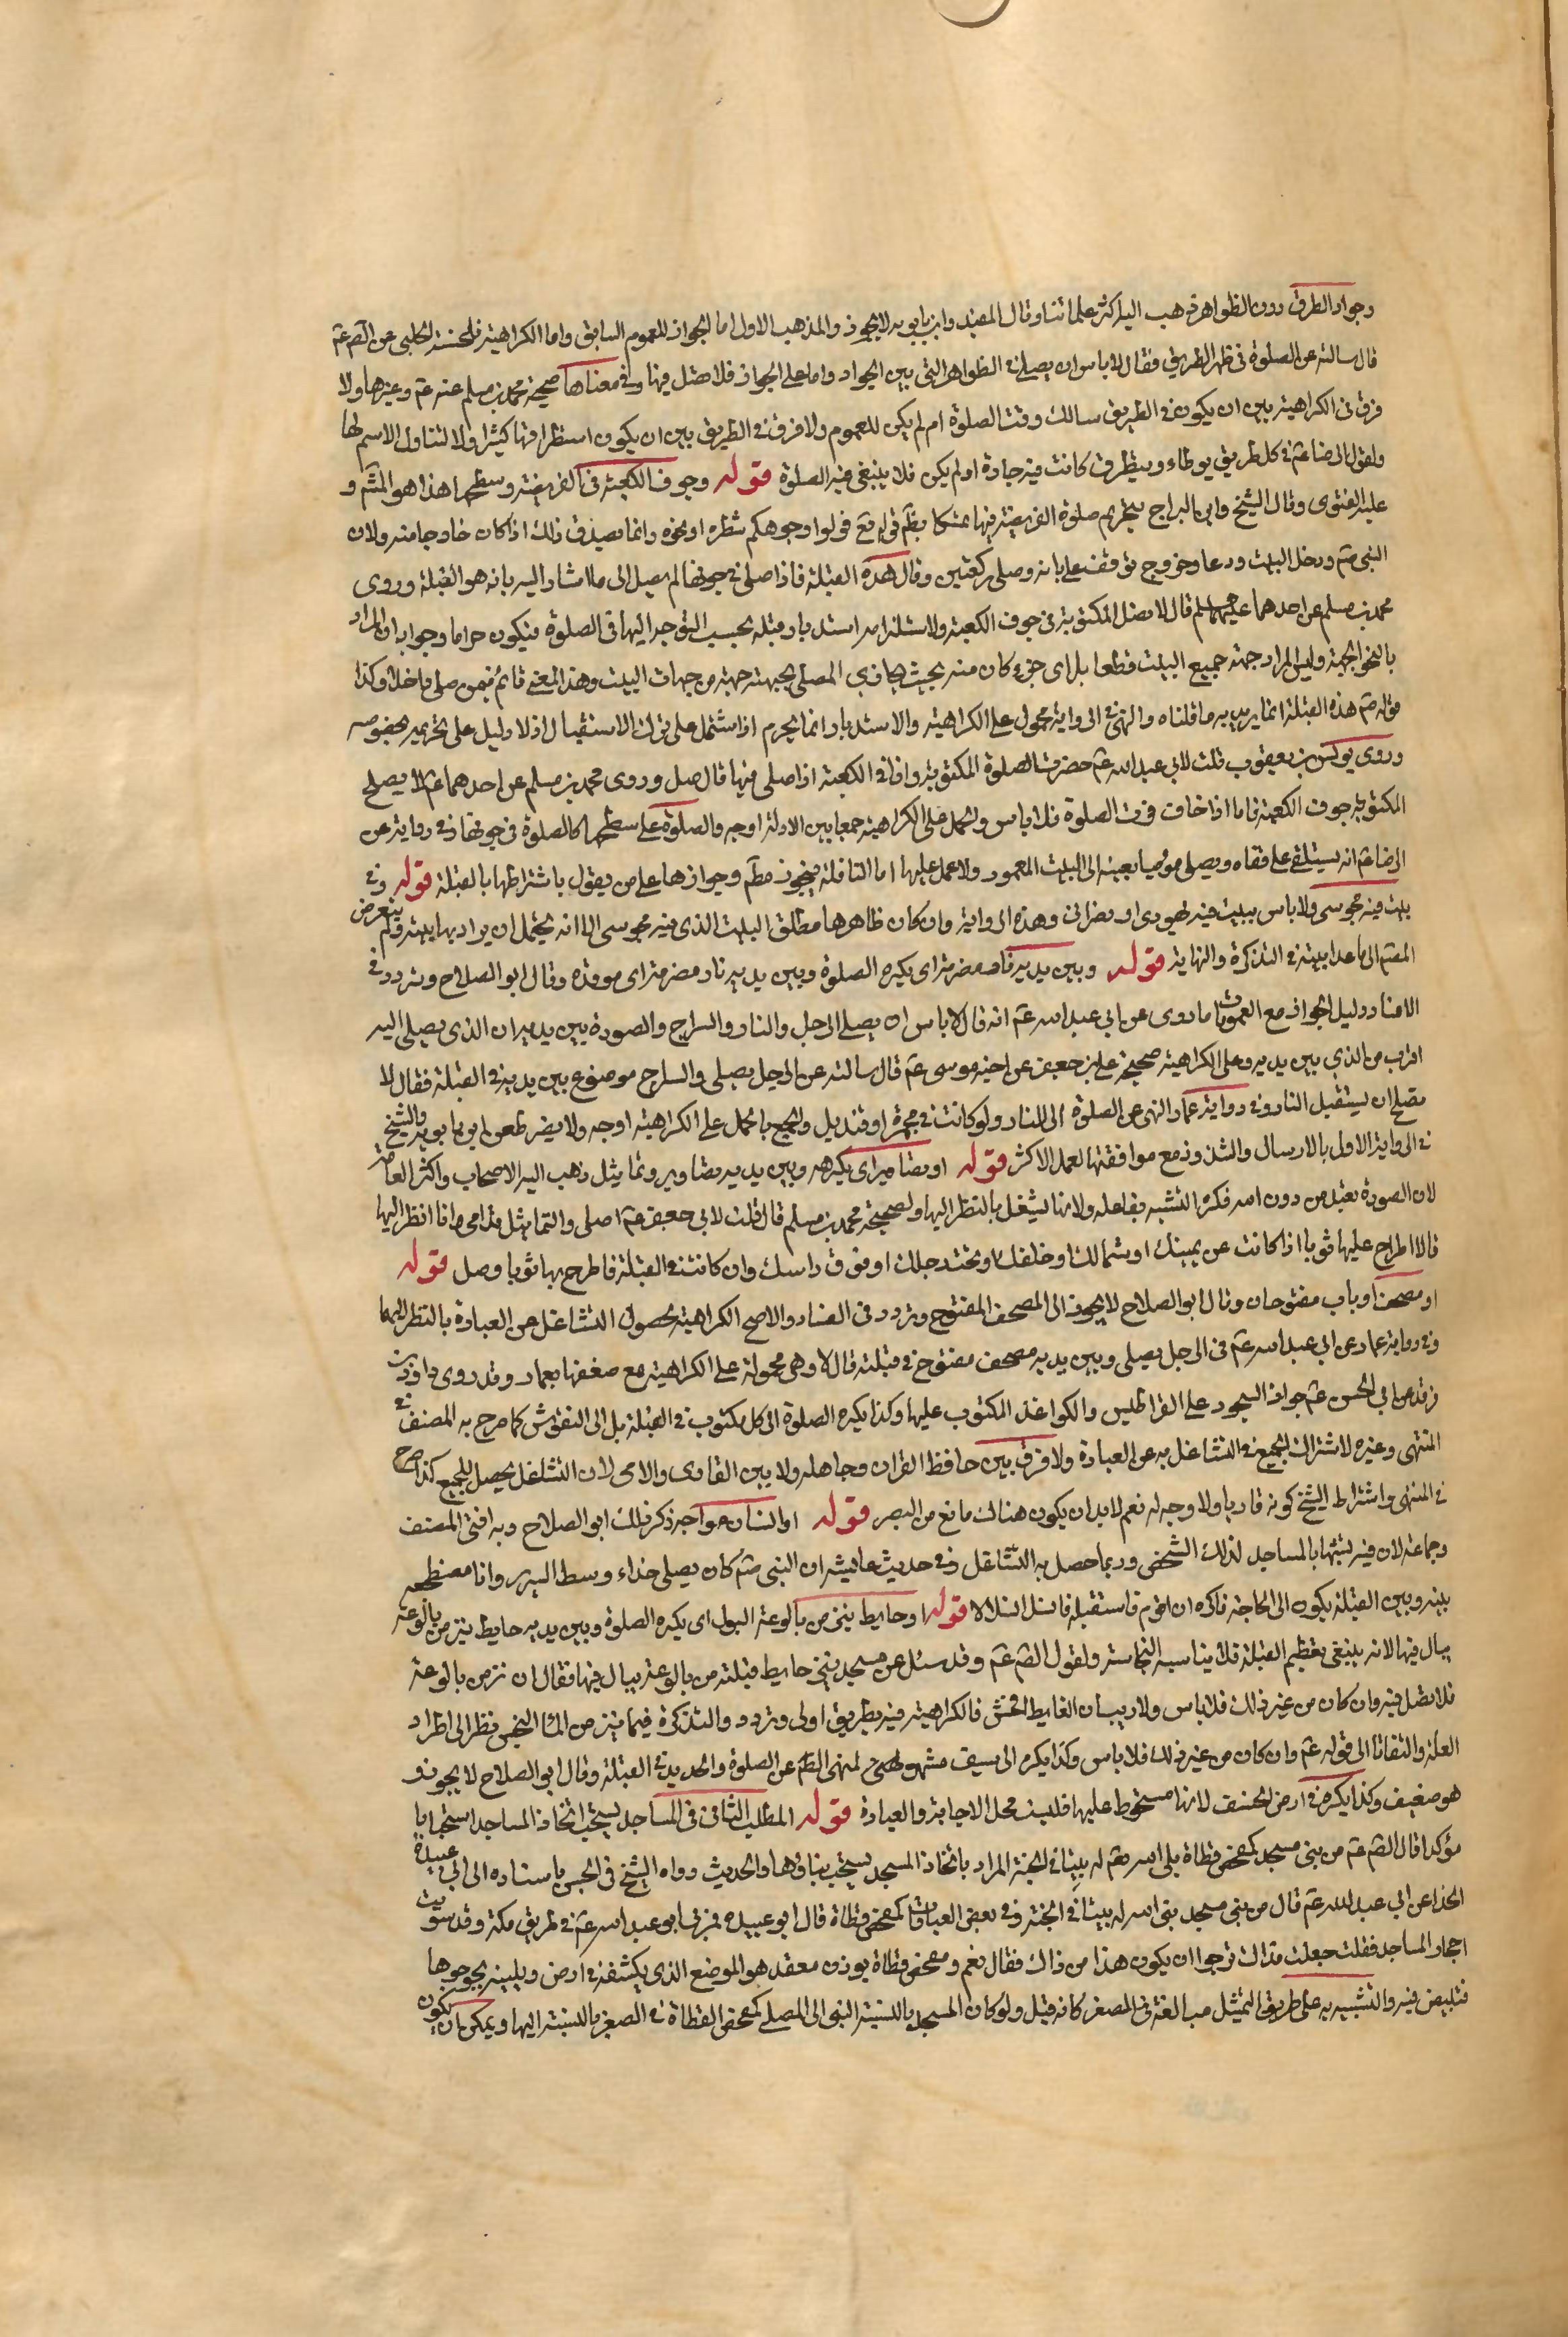 وجواد الطرق دون الظواهر ذهب اليه اكثر علمائنا وقال المفيد وابن بابويه لا يجوز والمذهب الاول اما الجواز للعموم السابق واما الكراهية فلحسنة الحلبي عن الصّ عم
قال سالته عن الصلوة في ظهر الطريق فقال لا باس ان يصلى في الظواهر التي بين الجواد واما على الجواد فلا تصل فيها وفي معناها صحيحة محمد بن مسلم عنه عم وغيرها ولا
فرق في الكراهية بين ان يكون في الطريق سالك وقت الصلوة ام لم يكن للعموم ولا فرق في الطريق بين ان يكون استطراقها كثيرا ولا لتناول الاسم لها
ولقول الرضا عم كل طريق يوطاء ويتطرق كانت فيه جادة او لم يكن فلا ينبغي فيه الصلوة قوله وجوف الكعبة في الفريضة وسطحها هذا هو المشّ و
عليه الفتوى وقال الشيخ وابن البراج بتحريم صلوة الفريضة فيها تمسكا بظّم قوله تع فولوا وجوهكم شطره او نحوه وانما يصدق ذلك اذا كان خارجا منه ولان
النبي صّ دخل البيت ودعا وخرج فوقف على بابه وصلى ركعتين وقال هذه القبلة فاذا صلى في جوفها لم يصل الى ما اشار اليه بانه هو القبلة وروى
محمد بن مسلم عن احدهما عليهما السلم قال لا تصل المكتوبة في جوف الكعبة ولاستلزامه استدبار قبلة يجب التوجه اليها في الصلوة فيكون حراما وجوابه ان المراد
بالنحو الجهة وليس المراد جهة جميع البيت قطعا بل اى جزء كان منه بحيث يحاذي المصلي بجبهته جهة من جهات البيت وهذا المعنى قائم فيمن صلى داخلا وكذا
قوله صّ هذه القبلة انما يريد به ما قلناه والنهي في الرواية محمول على الكراهية والاستدبار انما يحرم اذا اشتمل على ترك الاستقبال اذ لا دليل على تحريمه بخصوصه
وروى يونس بن يعقوب قلت لابي عبد الله عم حضرت الصلوة المكتوبة وانا في الكعبة اذا صلى فيها قال صل وروى محمد بن مسلم عن احدهما عم لا يصلح
المكتوبة جوف الكعبة فاما اذا خاف فوت الصلوة فلا باس والحمل على الكراهية جمعا بين الادلة اوجه والصلوة على سطحها كالصلوة في جوفها وفي رواية عن
الرضا عم انه يستلقى على قفاه ويصلي موميا بعينه الى البيت المعمور ولا عمل عليها اما النافلة فيجوز مطّم وجوازها على من يقول باشتراطها بالقبلة قوله وفي
بيت فيه مجوسي ولا باس ببيت فيه يهودي او نصراني وهذه الرواية وان كان ظاهرها مطلق البيت الذي فيه مجوسي الا انه يحتمل ان يراد بها بيته ولم يتعرض
المصّ الى ما عدا بيته في التذكرة والنهاية قوله وبين يديه نار مضرمة اى يكره الصلوة وبين يديه نار مضرمة اى موقدة وقال ابو الصلاح وتردد في
الافساد ودليل الجواز مع العمومات ما روى عن ابي عبد الله عم انه قال لا باس ان يصلي الرجل والنار والسراج والصورة بين يديه ان الذي يصلي اليه
اقرب من الذي بين يديه وعلى الكراهية صحيحة علي بن جعفر عن اخيه موسى عم قال سالته عن الرجل يصلي والسراج موضوع بين يديه في القبلة فقال لا
يصلح ان يستقبل النار وفي رواية عمار النهي عن الصلوة الى النار ولو كانت في مجمرة او قنديل والجمع بالحمل على الكراهية اوجه ولا يضر طعن ابن بابويه والشيخ
في الرواية الاولى بالارسال والشذوذ مع موافقتها لعمل الاكثر قوله او تصاوير اى يكره وبين يديه تصاوير وتماثيل ذهب اليه الاصحاب واكثر العامة
لان الصورة تعبد من دون الله فكره التشبه بفاعله ولانها تشغل بالنظر اليها ولصحيحة محمد بن مسلم قال قلت لابي جعفر عم اصلي والتماثيل قدامي وانا انظر اليها
قال لا اطرح عليها ثوبا اذا كانت عن يمينك او شمالك او خلفك او تحت رجلك او فوق راسك وان كانت في القبلة فاطرح بها ثوبا وصل قوله
او مصحف او باب مفتوحان وقال ابو الصلاح لا يجوز الى المصحف المفتوح وتردد في الفساد والاصح الكراهية لحصول التشاغل عن العبادة بالنظر اليهما
وفي رواية عمار عن ابي عبد الله عم في الرجل يصلي وبين يديه مصحف مفتوح في قبلته قال لا وهي محمولة على الكراهية مع ضعفها بعمار وقد روى داود بن
فرقد عن ابي الحسن عم جواز السجود على القراطيس والكواغذ المكتوب عليها وكذا يكره الصلوة الى كل مكتوب في القبلة بل الى النقوش كما صرح به المصنف في
المنتهى وغيره لاشتراك الجميع في التشاغل به عن العبادة ولا فرق بين حافظ القران وجاهله ولا بين القارى والامي لان التشاغل يحصل للجميع كذا صرح
في المنتهى واشتراط الشيخ كونه قاريا ولا وجه له نعم لا بد ان يكون هناك مانع من البصر قوله او انسان مواجه ذكر ذلك ابو الصلاح وبه افتى المصنف
وجماعة لان فيه تشبها بالساجد لذلك الشخص وربما حصل به التشاغل وفي حديث عايشة ان النبي صّ كان يصلي حذاء وسط السرير وانا مضطجعة
بينه وبين القبلة يكون الى الحاجة فاكره ان اقوم فاستقبله فانسل انسلالا قوله او حايط ينز من بالوعة البول اى يكره الصلوة وبين يديه حايط ينز من بالوعة
يبال فيها لانه ينبغي تعظيم القبلة فلا يناسبه النجاسة ولقول الصّ عم وقد سئل عن مسجد ينز حايط قبلته من بالوعة يبال فيها فقال ان نز من بالوعة
فلا تصل فيه وان كان من غير ذلك فلا باس ولا ريب ان الغايط افحش فالكراهية فيه بطريق اولى وتردد والتذكرة فيما ينز من الماء النجس نظرا الى اطراد
العلة والتفاتا الى قوله عم وان كان من غير ذلك فلا باس وكذا يكره الى سيف مشهور لنهى الصّ عن الصلوة والحديد في القبلة وقال ابو الصلاح لا يجوز و
هو ضعيف وكذا يكره في ارض الخسف لانها مسخوط عليها فليست محل الاجابة والعبادة قوله المطلب الثاني في المساجد يستحب اتخاذ المساجد استحبابا
مؤكدا قال الصّ عم من بنى مسجد كمفحص قطاة بنى الله تعم له بيتا في الجنة المراد باتخاذ المسجد يستحب بناؤها والحديث رواه الشيخ في الحسن باسناده الى ابي عبيدة
الحذا عن ابي عبد الله عم قال من بنى مسجد بنى الله له بيتا في الجنة وفي بعض العبارات كمفحص قطاة قال ابو عبيدة فمر بي ابو عبد الله عم في طريق مكة وقد سويت
احجار المساجد فقلت جعلت فداك نرجوا ان يكون هذا من ذاك فقال نعم ومفحص قطاة بوزن مقعد هو الموضع الذي يكشفه في ارض ويلينه بجوجوها
فتبيض فيه والتشبيه به على طريق التمثيل مبالغة في الصغر كانه قيل ولو كان المسجد بالنسبة الى المصلى كمفحص القطاة في الصغر بالنسبة اليها ويمكن ان يكون